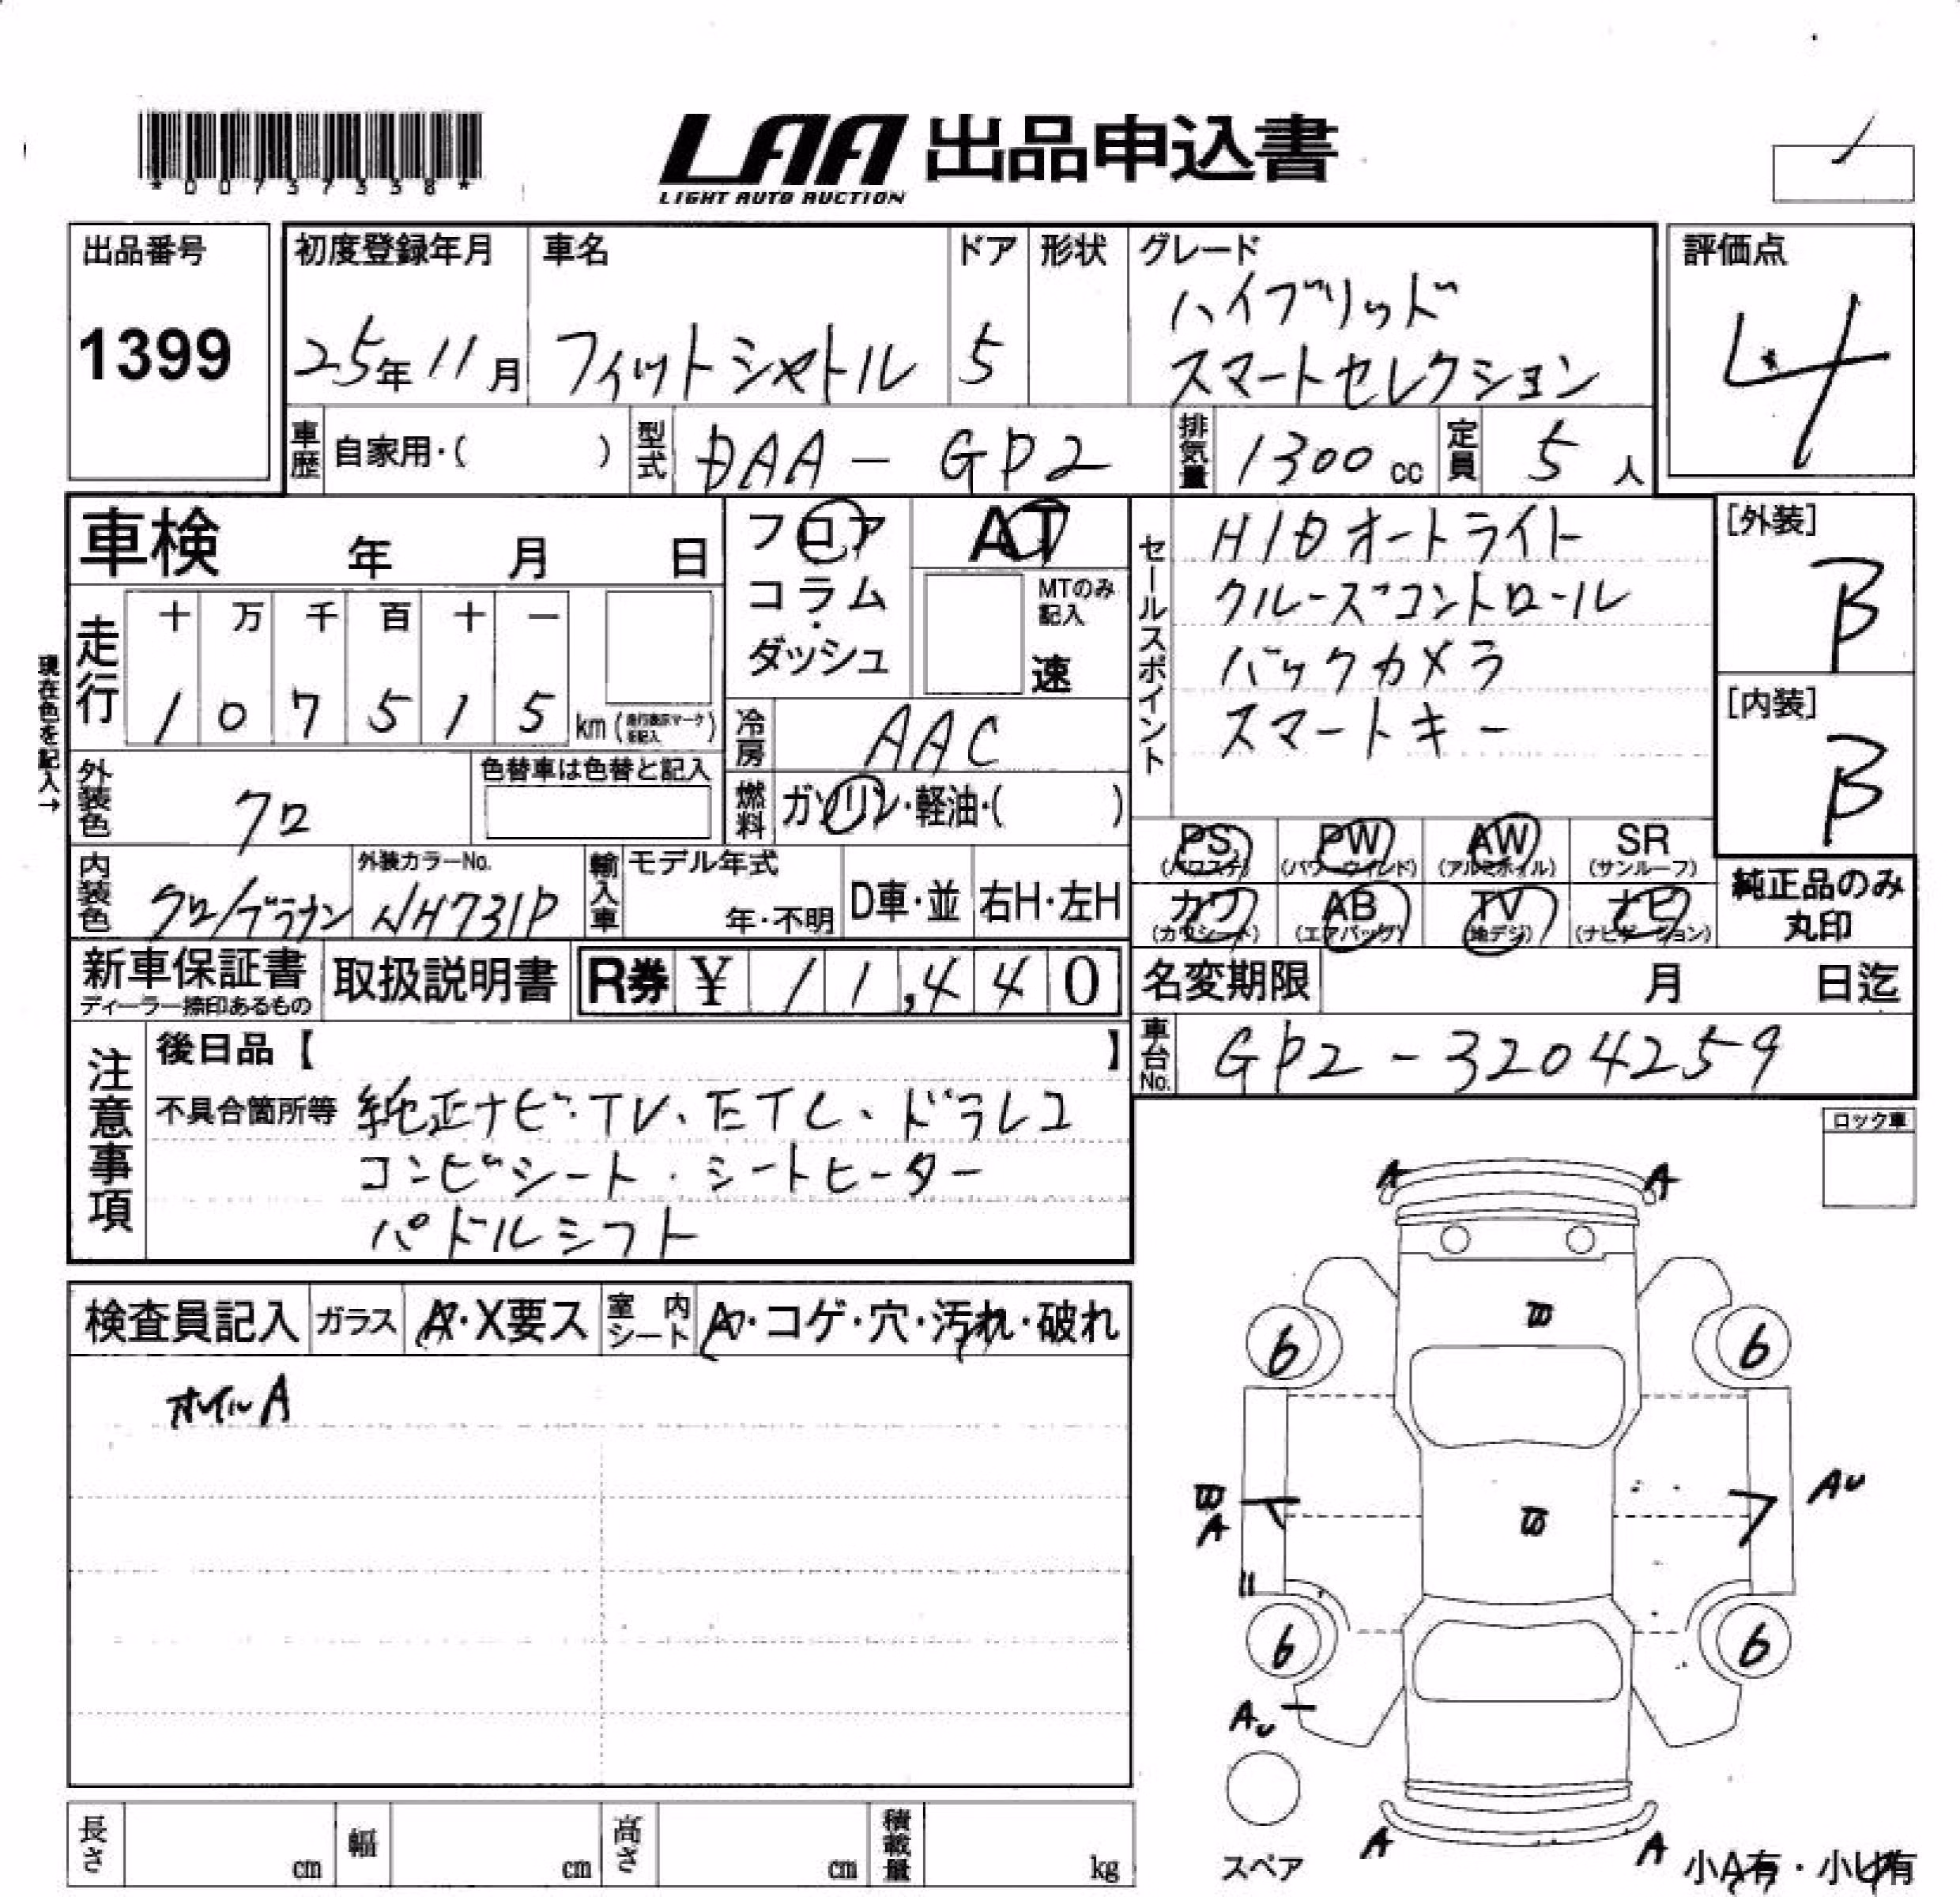 *00737338*
LAA 出品申込書
LIGHT AUTO AUCTION
出品番号
1399
初度登録年月
25年11月
車名
フィットシャトル
ドア
5
形状
グレード
ハイブリッド
スマートセレクション
評価点
4
車歴
自家用・( )
型式
DAA-GP2
排気量
1300cc
定員
5人
車検 年 月 日
走行
十 万 千 百 十 一
1 0 7 5 1 5 km
現在色を記入→
フロア
コラム
ダッシュ
AT
MTのみ
記入
速
冷房
AAC
燃料
ガソリン・軽油・( )
セールスポイント
HIDオートライト
クルーズコントロール
バックカメラ
スマートキー
[外装]
B
[内装]
B
外装色
クロ
色替車は色替と記入
内装色
クロ/ブラウン
外装カラーNo.
NH731P
輸入車
モデル年式
年・不明
D車・並
右H・左H
PS
(パワステ)
PW
(パワーウインド)
AW
(アルミホイル)
SR
(サンルーフ)
カワ
(カワシート)
AB
(エアバッグ)
TV
(地デジ)
ナビ
(ナビゲーション)
純正品のみ
丸印
新車保証書
ディーラー捺印あるもの
取扱説明書
R券 ¥ 11,440
名変期限 月 日迄
車台No.
GP2-3204259
注意事項
後日品【 】
不具合箇所等 純正ナビ・TV、ETC、ドラレコ
コンビシート・シートヒーター
パドルシフト
ロック車
検査員記入
ガラス
A・X要ス
室内
シート
A・コゲ・穴・汚れ・破れ
ホイルA
A A
6 6
A
AU
6 6
AU
スペア
A A
小A有・小U有
長さ cm
幅 cm
高さ cm
積載量 kg